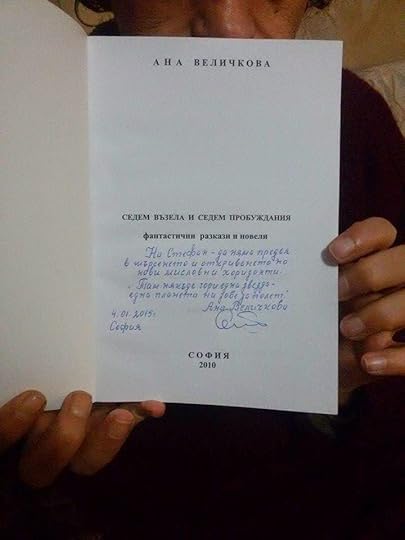 АНА ВЕЛИЧКОВА
СЕДЕМ ВЪЗЕЛА И СЕДЕМ ПРОБУЖДАНИЯ
фантастични разкази и новели
На Стефан - да няма предел
в търсенето и откриването на
нови мисловни хоризонти.
"Там някъде гори една звезда -
една планета ни зове за полет!"
4.01.2015г. Ана Величкова
София
СОФИЯ
2010